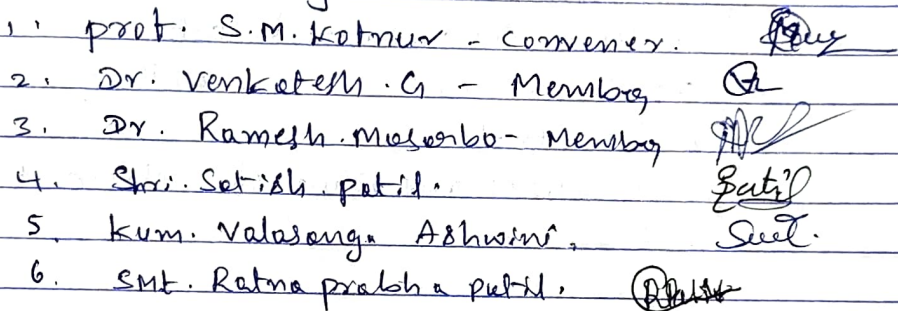 1. prof. S.M. Kotnur - convener.
2. Dr. Venkatesh .G - Member
3. Dr. Ramesh. - Member
4. Shri. Satish patil. Patil
5. Kum. Valasanga Ashwini,
6. Smt. Ratna prabha patil.